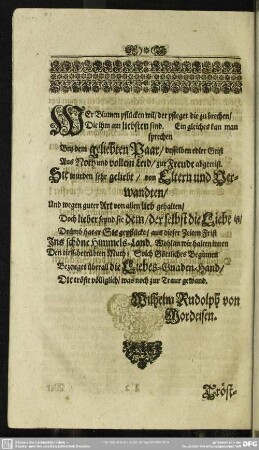 WEr Blumen pflücken wil/ der pfleget die zu brechen/
Die ihm am liebsten sind. Ein gleiches kan man
sprechen
Bey dem geliebten Paar/ desselben edler Geist
Aus Noth und vollem Leid/ zur Freude abgereist.
Sie wurden sehr geliebt/ von Eltern und Ver-
wandten/
Und wegen guter Art von allen lieb gehalten/
Doch lieber seynd sie dem/ der selbst die Liebe ist/
Drümb hat er Sie gepflückt/ aus dieser Zeiten Frist
Ins schöne Himmels-Land. Wohlan wir halten innen
Den tieffbetrübten Muth; Solch Göttliches Beginnen
Bezeuget überall die Liebes-Gnaden-Hand/
Die tröste völliglich/ was noch zur Traur gewand.
Wilhelm Rudolph von
Mordeisen.
Tröst-